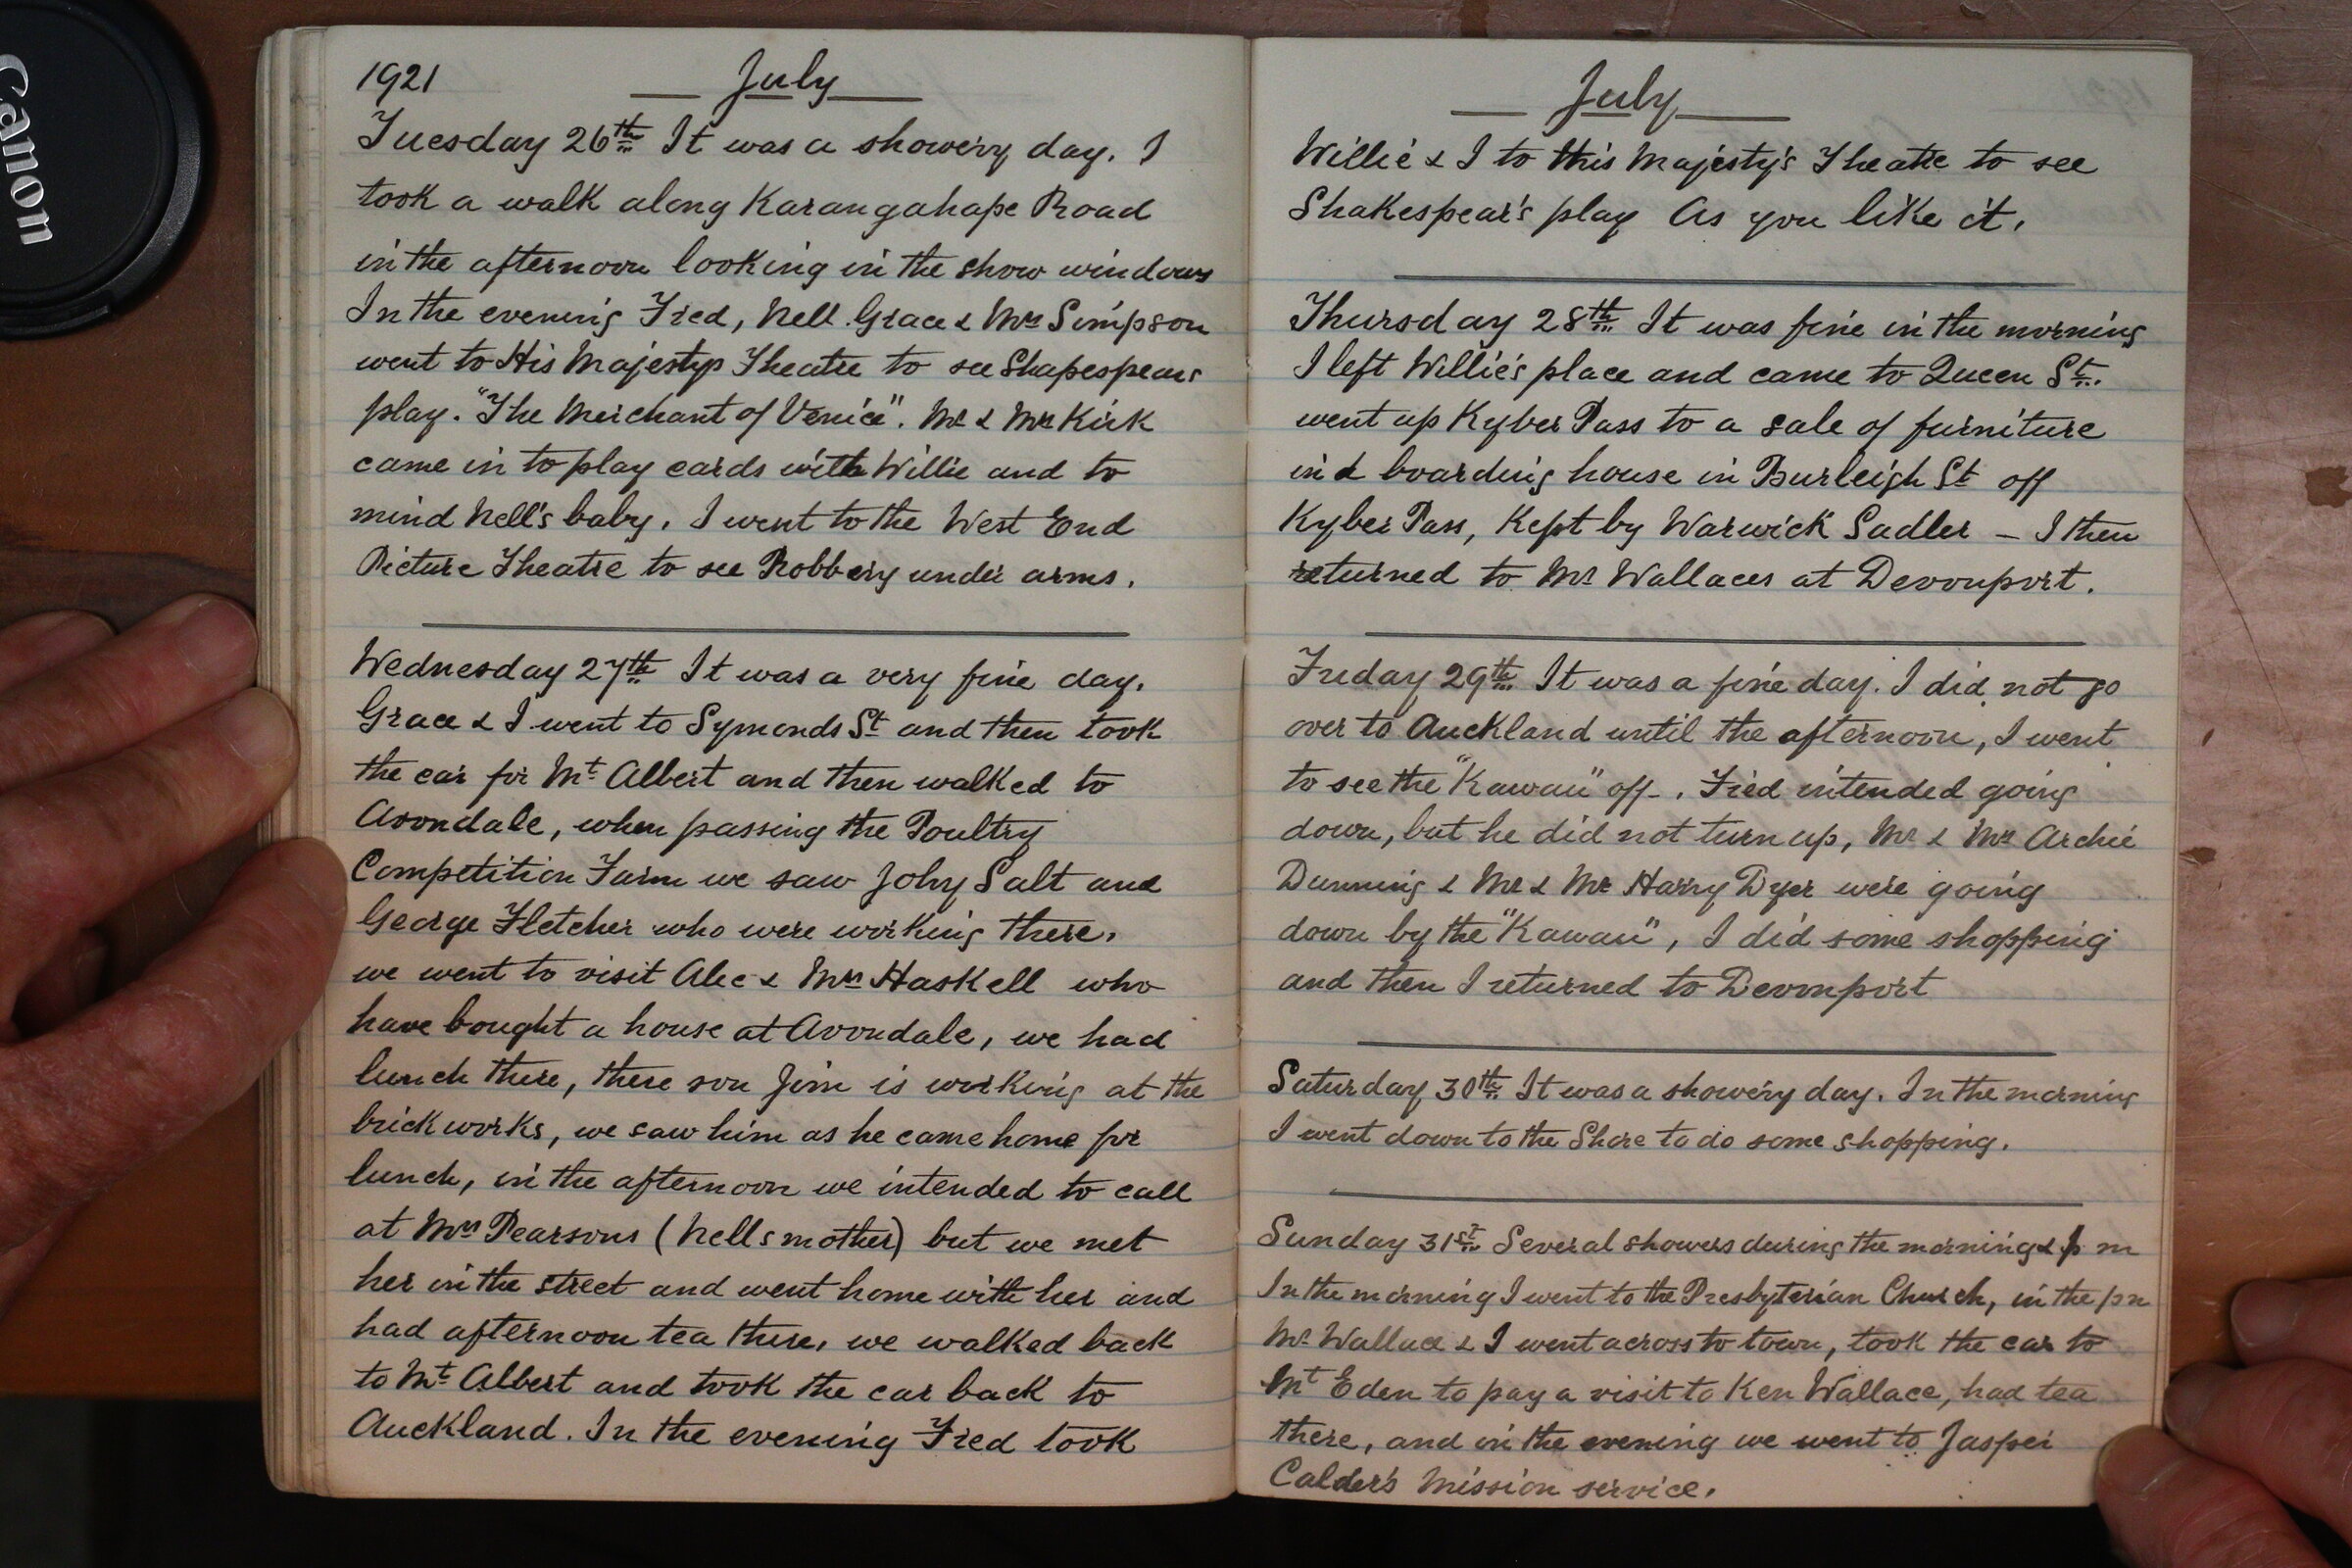 Canon
1921 July
Tuesday 26th It was a showery day. I
took a walk along Karangahape Road
in the afternoon looking in the show windows
In the evening Fred, Nell. Grace & Mrs Simpson
went to His Majestys Theatre to see Shapespears
play. "The Merchant of Venice". Mr & Mrs Kirk
came in to play cards with Willie and to
mind Nell's baby. I went to the West End
Picture Theatre to see Robbery under arms.
Wednesday 27th It was a very fine day.
Grace & I went to Symonds St and then took
the car for Mt Albert and then walked to
Avondale, when passing the Poultry
Competition Farm we saw Johy Salt and
George Fletcher who were working there.
we went to visit Alec & Mrs Haskell who
have bought a house at Avondale, we had
lunch there, there son Jim is working at the
brick works, we saw him as he came home for
lunch, in the afternoon we intended to call
at Mrs Pearsons (Nells mother) but we met
her in the street and went home with her and
had afternoon tea there, we walked back
to Mt Albert and took the car back to
Auckland. In the evening Fred took
July
Willie & I to this Majesty's Theatre to see
Shakespear's play As you like it.
Thursday 28th It was fine in the morning
I left Willie's place and came to Queen St.
went up Kyber Pass to a sale of furniture
in a boarding house in Burleigh St off
Kyber Pass, Kept by Warwick Sadler - I then
returned to Mr Wallaces at Devonport.
Friday 29th It was a fine day. I did not go
over to Auckland until the afternoon, I went
to see the "Kawau" off-. Fred intended going
down, but he did not turn up, Mr & Mrs Archie
Dunning & Mr & Mrs Harry Dyer were going
down by the "Kawau", I did some shopping
and then I returned to Devonport
Saturday 30th It was a showery day. In the morning
I went down to the Shore to do some shopping.
Sunday 31st Several showers during the morning & p m
In the morning I went to the Presbyterian Church, in the pm
Mr Wallace & I went across to town, took the car to
Mt Eden to pay a visit to Ken Wallace, had tea
there, and in the evening we went to Jasper
Calder's Mission service.